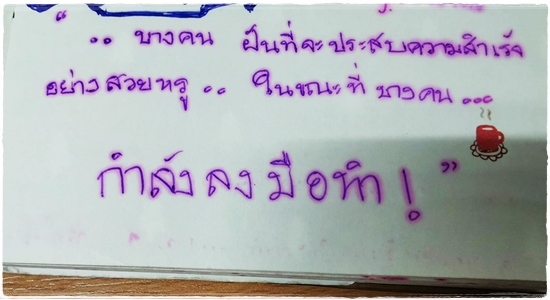 " .. บางคน ฝันที่จะประสบความสำเร็จ
อย่างสวยหรู .. ในขณะที่ บางคน ...
กำลังลงมือทำ ! "